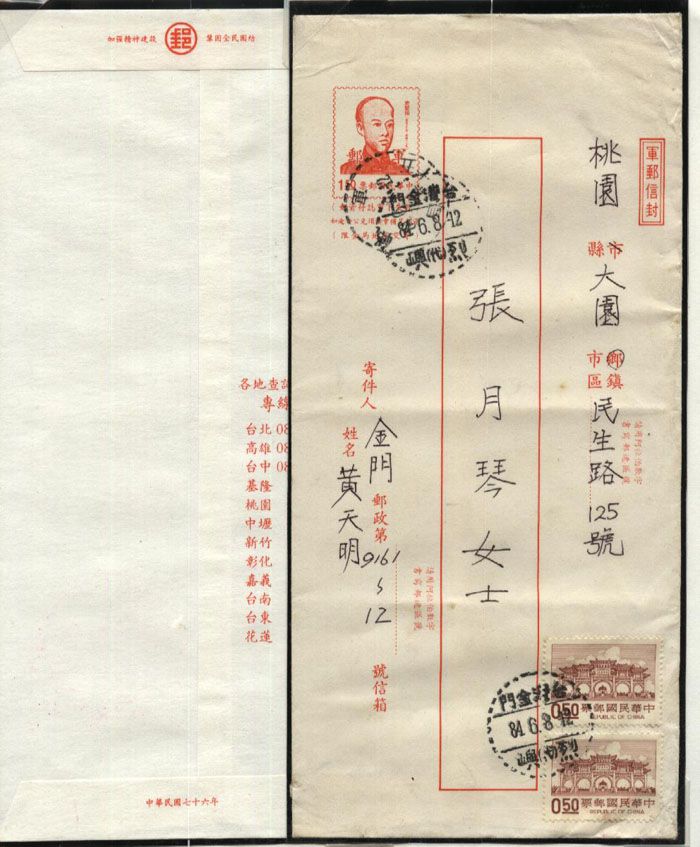 加強精神建設 郵 鞏固全民團結
各地查詢
專線
台北 08
高雄 08
台中 08
基隆
桃園
中壢
新竹
彰化
嘉義
台南
台東
花蓮
中華民國七十六年
軍郵信封
桃園
市
縣
大園
鄉鎮
市區
民生路125號
請用阿拉伯數字
書寫郵遞區號
張月琴女士
軍郵
中華民國郵票
寄件人
姓名
黃天明
金門郵政第9161
12
號信箱
台灣金門
84.6.8.12
烈嶼
台灣金門
84.6.8.12
烈嶼
中華民國郵票
REPUBLIC OF CHINA
0.50
中華民國郵票
REPUBLIC OF CHINA
0.50